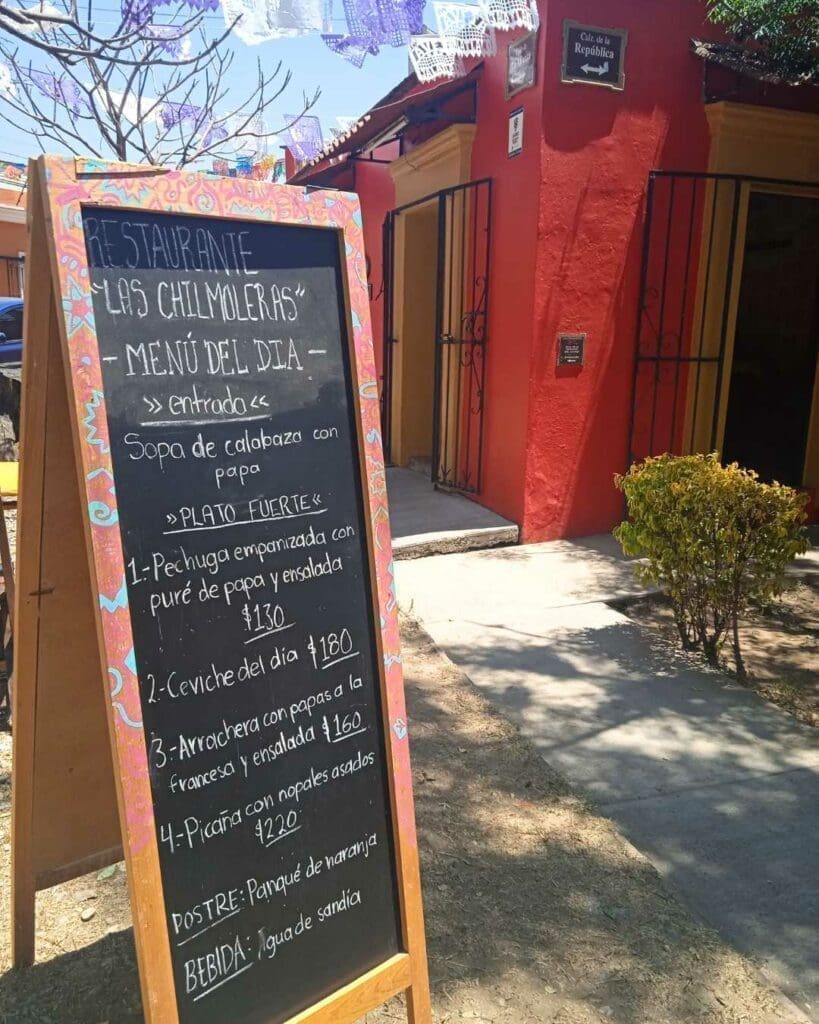 Calz. de la
República
RESTAURANTE
"LAS CHILMOLERAS"
- MENÚ DEL DIA -
»entrada«
Sopa de calabaza con
papa
»PLATO FUERTE«
1.-Pechuga empanizada con
puré de papa y ensalada
$130
2.-Ceviche del día $180
3.-Arrachera con papas a la
francesa y ensalada $160
4.-Picaña con nopales asados
$220
POSTRE: Panqué de naranja
BEBIDA: Agua de sandía